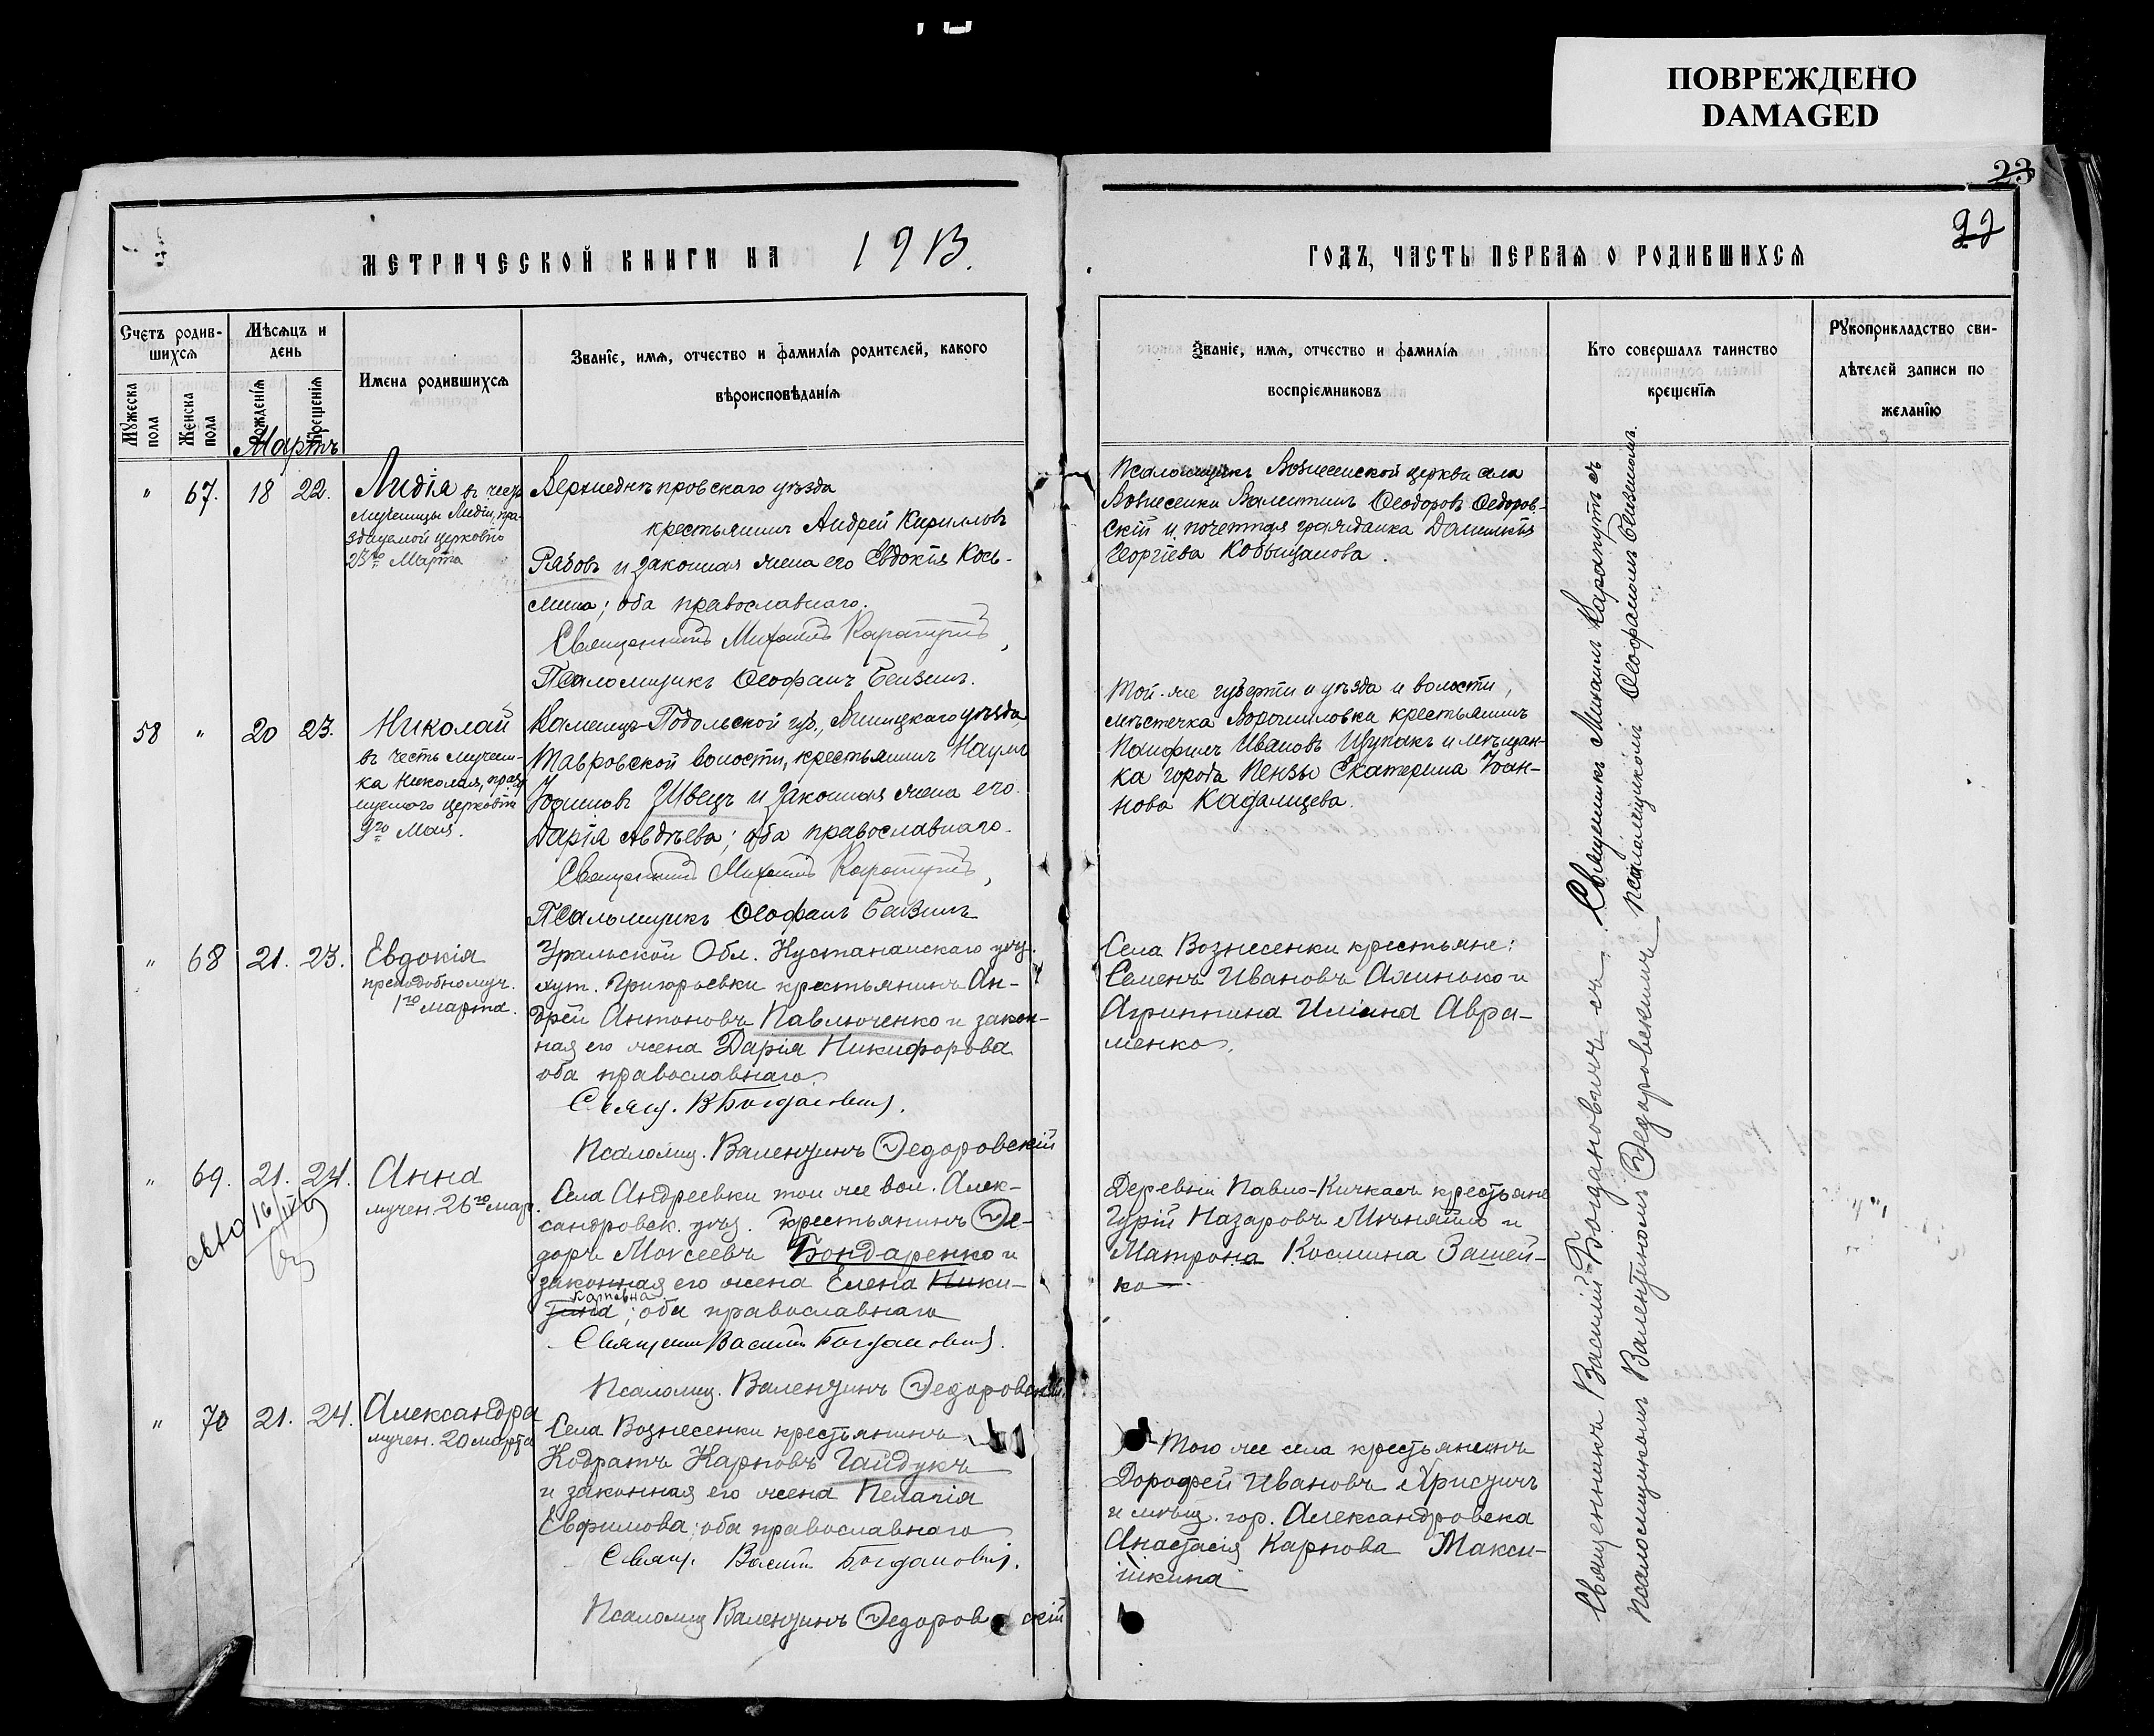 ПОВРЕЖДЕНО
DAMAGED
23
22
МЕТРИЧЕСКОЙ КНИГИ НА 1913.
ГОДЪ, ЧАСТЬ ПЕРВАЯ О РОДИВШИХСЯ
Счетъ родив-
шихся
Мужеска пола
Женска пола
Мѣсяцъ и
день
Рожденія
Крещенія
Имена родившихся
Званіе, имя, отчество и фамилія родителей, какого
вѣроисповѣданія
Званіе, имя, отчество и фамилія
воспріемниковъ
Кто совершалъ таинство
крещенія
Рукоприкладство сви-
дѣтелей записи по
желанію
Мартъ
" 67. 18 22.
Лидія въ честь
мученицы Лидіи, пра-
зднуемой церковію
23го Марта
Верхнеднѣпровскаго уѣзда
крестьянинъ Андрей Кирилловъ
Рябовъ и законная жена его Евдокія Кось-
мина; оба православнаго.
Священникъ Михаилъ Карапутъ,
Псаломщикъ Ѳеофанъ
Псаломщикъ Вознесенской церкви села
Вознесенки Валентинъ Ѳеодоровъ Ѳедоров-
скій и почетная гражданка
Георгіева
58 " 20 23.
Николай
въ честь мучени-
ка Николая, празд-
нуемого церковію
9го Мая.
Каменецъ-Подольской губ., уѣзда,
Тавровской волости, крестьянинъ Наумъ
Швецъ и законная жена его
Дарія Авдѣева; оба православнаго.
Священникъ Михаилъ Карапутъ,
Псаломщикъ Ѳеофанъ
Той-же губерніи и уѣзда и волости,
мѣстечка Ворошиловка крестьянинъ
Панфилъ Ивановъ Щупакъ и мѣщан-
ка города Пензы Екатерина Іоан-
нова
" 68 21. 23.
Евдокія
преподобномуч.
1го марта.
Уральской Обл. Кустанайскаго уѣз.
хут. Григорьевки крестьянинъ Ан-
дрей Антоновъ Павлюченко и закон-
ная его жена Дарія Никифорова
оба православнаго.
Свящ. В Богдановичъ.
Псаломщ. Валентинъ Ѳедоровскій
Села Вознесенки крестьяне:
Семенъ Ивановъ и
Агриппина Авра-
менко.
" 69. 21. 24.
Анна
мучен. 26го мар.
Села Андреевки той же вол. Алек-
сандровск. уѣз. крестьянинъ Ѳе-
доръ Моисеевъ Бондаренко и
законная его жена Елена Ники-
тина; оба православнаго
Священник Василій Богдановичъ.
Псаломщ. Валентинъ Ѳедоровскій.
Деревни Павло-Кичкасъ крестьяне
Гурій Назаровъ и
Матрона Космина Зашей-
ко
" 70 21. 24.
Александра
мучен. 20 марта
Села Вознесенки крестьянинъ
Кодратъ Карповъ Гайдукъ
и законная его жена Пелагія
Евфимова; оба православнаго
Свящ. Василій Богдановичъ.
Псаломщ Валентинъ Ѳедоровскій
Того же села крестьянинъ
Дорофей Ивановъ
и мѣщ. гор. Александровска
Анастасія Карпова Макси-
шкина
Священникъ Михаилъ Карапутъ съ
псаломщикомъ Ѳеофаномъ
Священникъ Василій Богдановичъ съ
псаломщикомъ Валентиномъ Ѳедоровскимъ